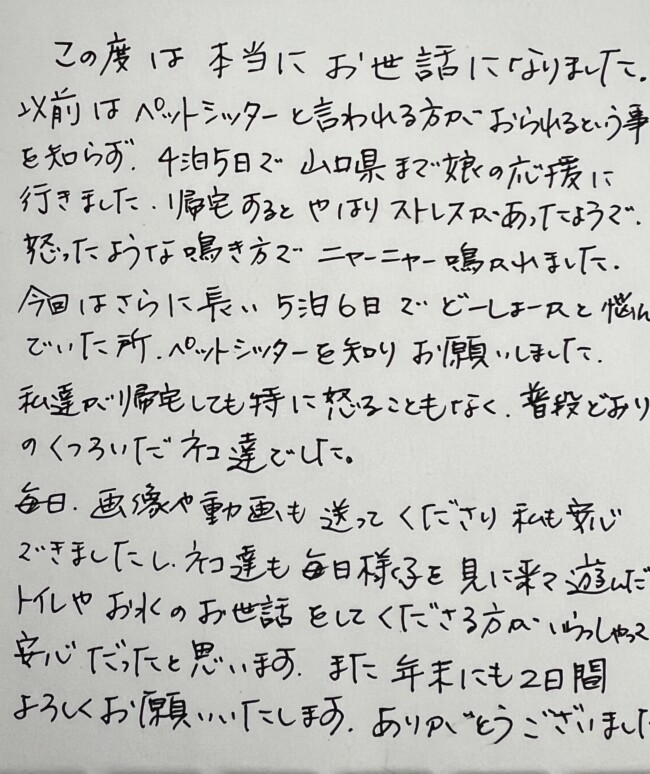 この度は本当にお世話になりました。
以前はペットシッターと言われる方がおられるという事
を知らず、4泊5日で山口県まで娘の応援に
行きました。帰宅するとやはりストレスがあったようで、
怒ったような鳴き方でニャーニャー鳴かれました。
今回はさらに長い5泊6日でどーしよーかと悩ん
でいた所、ペットシッターを知りお願いしました。
私達が帰宅しても特に怒ることもなく、普段どおり
のくつろいだネコ達でした。
毎日、画像や動画も送ってくださり私も安心
できましたし、ネコ達も毎日様子を見に来て遊んだ
トイレやお水のお世話をしてくださる方がいらっしゃって
安心だったと思います。また年末にも2日間
よろしくお願いいたします。ありがとうございました